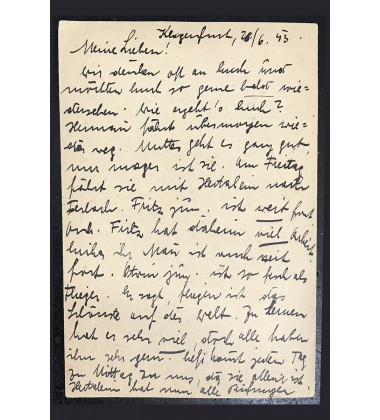 Klagenfurt, 28/6. 43.
Meine Lieben!
Wir denken oft an Euch und
möchten Euch so gerne bald wie=
dersehen. Wie ergeht's Euch?
Hermann fährt übermorgen wie=
der weg. Mutter geht es ganz gut
nur mager ist sie. Am Freitag
fährt sie mit Hertalein nach
Ferlach. Fritz jun. ist weit fort
auch. Fritz hat daheim viel Arbeit
ihr Mann ist auch weit
fort. jun. ist so fesch als
Flieger. Er sagt, fliegen ist das
Schönste auf der Welt. Zu lernen
hat er sehr viel, doch alle haben
ihn sehr gern. kommt jeden Tag
zu Mittag zu uns, da sie allein ist
Hertalein hat nun alle